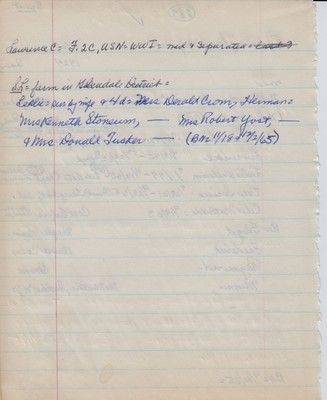 Lawrence C = F. 2C, USN = WW I = med & Separated =
S.R. = farm in Glendale District =
Leslie = his by mgs & 4 d = Mrs Donald Crom, Herman =
Mrs Kenneth Stoneum, — Mrs Robert Yost, —
& Mrs Donald Tusker — (BN = 11/19 & 12/2/65)